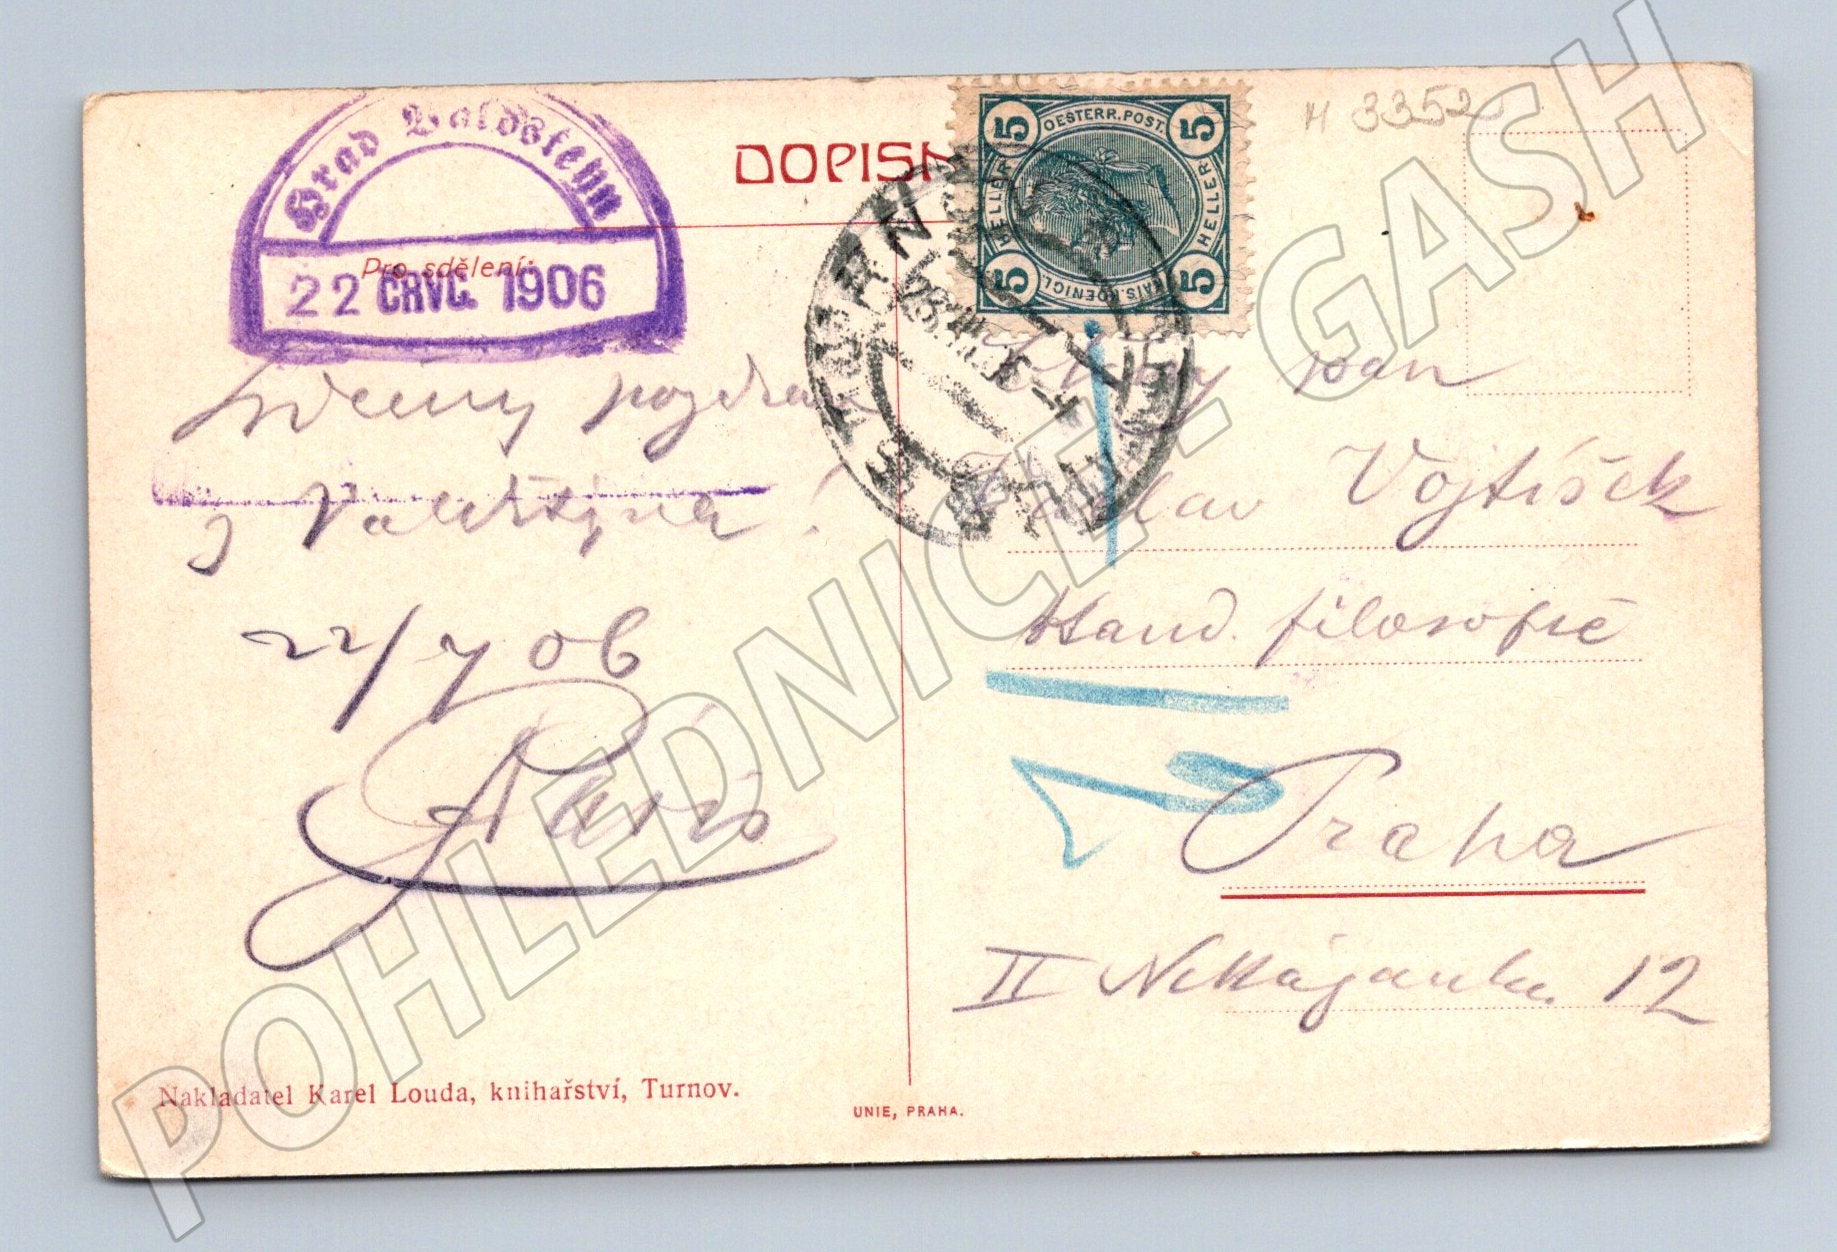 Hrad Valdsteyn
22 ČRVC. 1906
DOPISN
Pro sdělení:
OESTERR. POST.
5 5
HELLER HELLER
5 5
KAIS. KOENIGL.
TURN
H 3352
Srdečný pozdrav
z Valdštýna!
22/7 06
pan
Vojtíšek
Kand. filosofie
Praha
II Nekázanka 12
Nakladatel Karel Louda, knihařství, Turnov.
UNIE, PRAHA.
POHLEDNICE - GASH